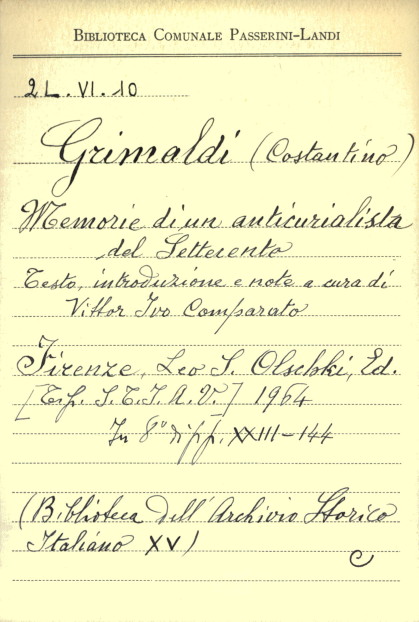 BIBLIOTECA COMUNALE PASSERINI-LANDI
2L.VI.10
Grimaldi (Costantino)
Memorie di un anticurialista
del Settecento
Testo, introduzione e note a cura di
Vittor Ivo Comparato
Firenze, Leo S. Olschki, Ed.
[Tip. S.T.I.A.V.] 1964
In 8° di pp. XXIII-144
(Biblioteca dell'Archivio Storico
Italiano XV)